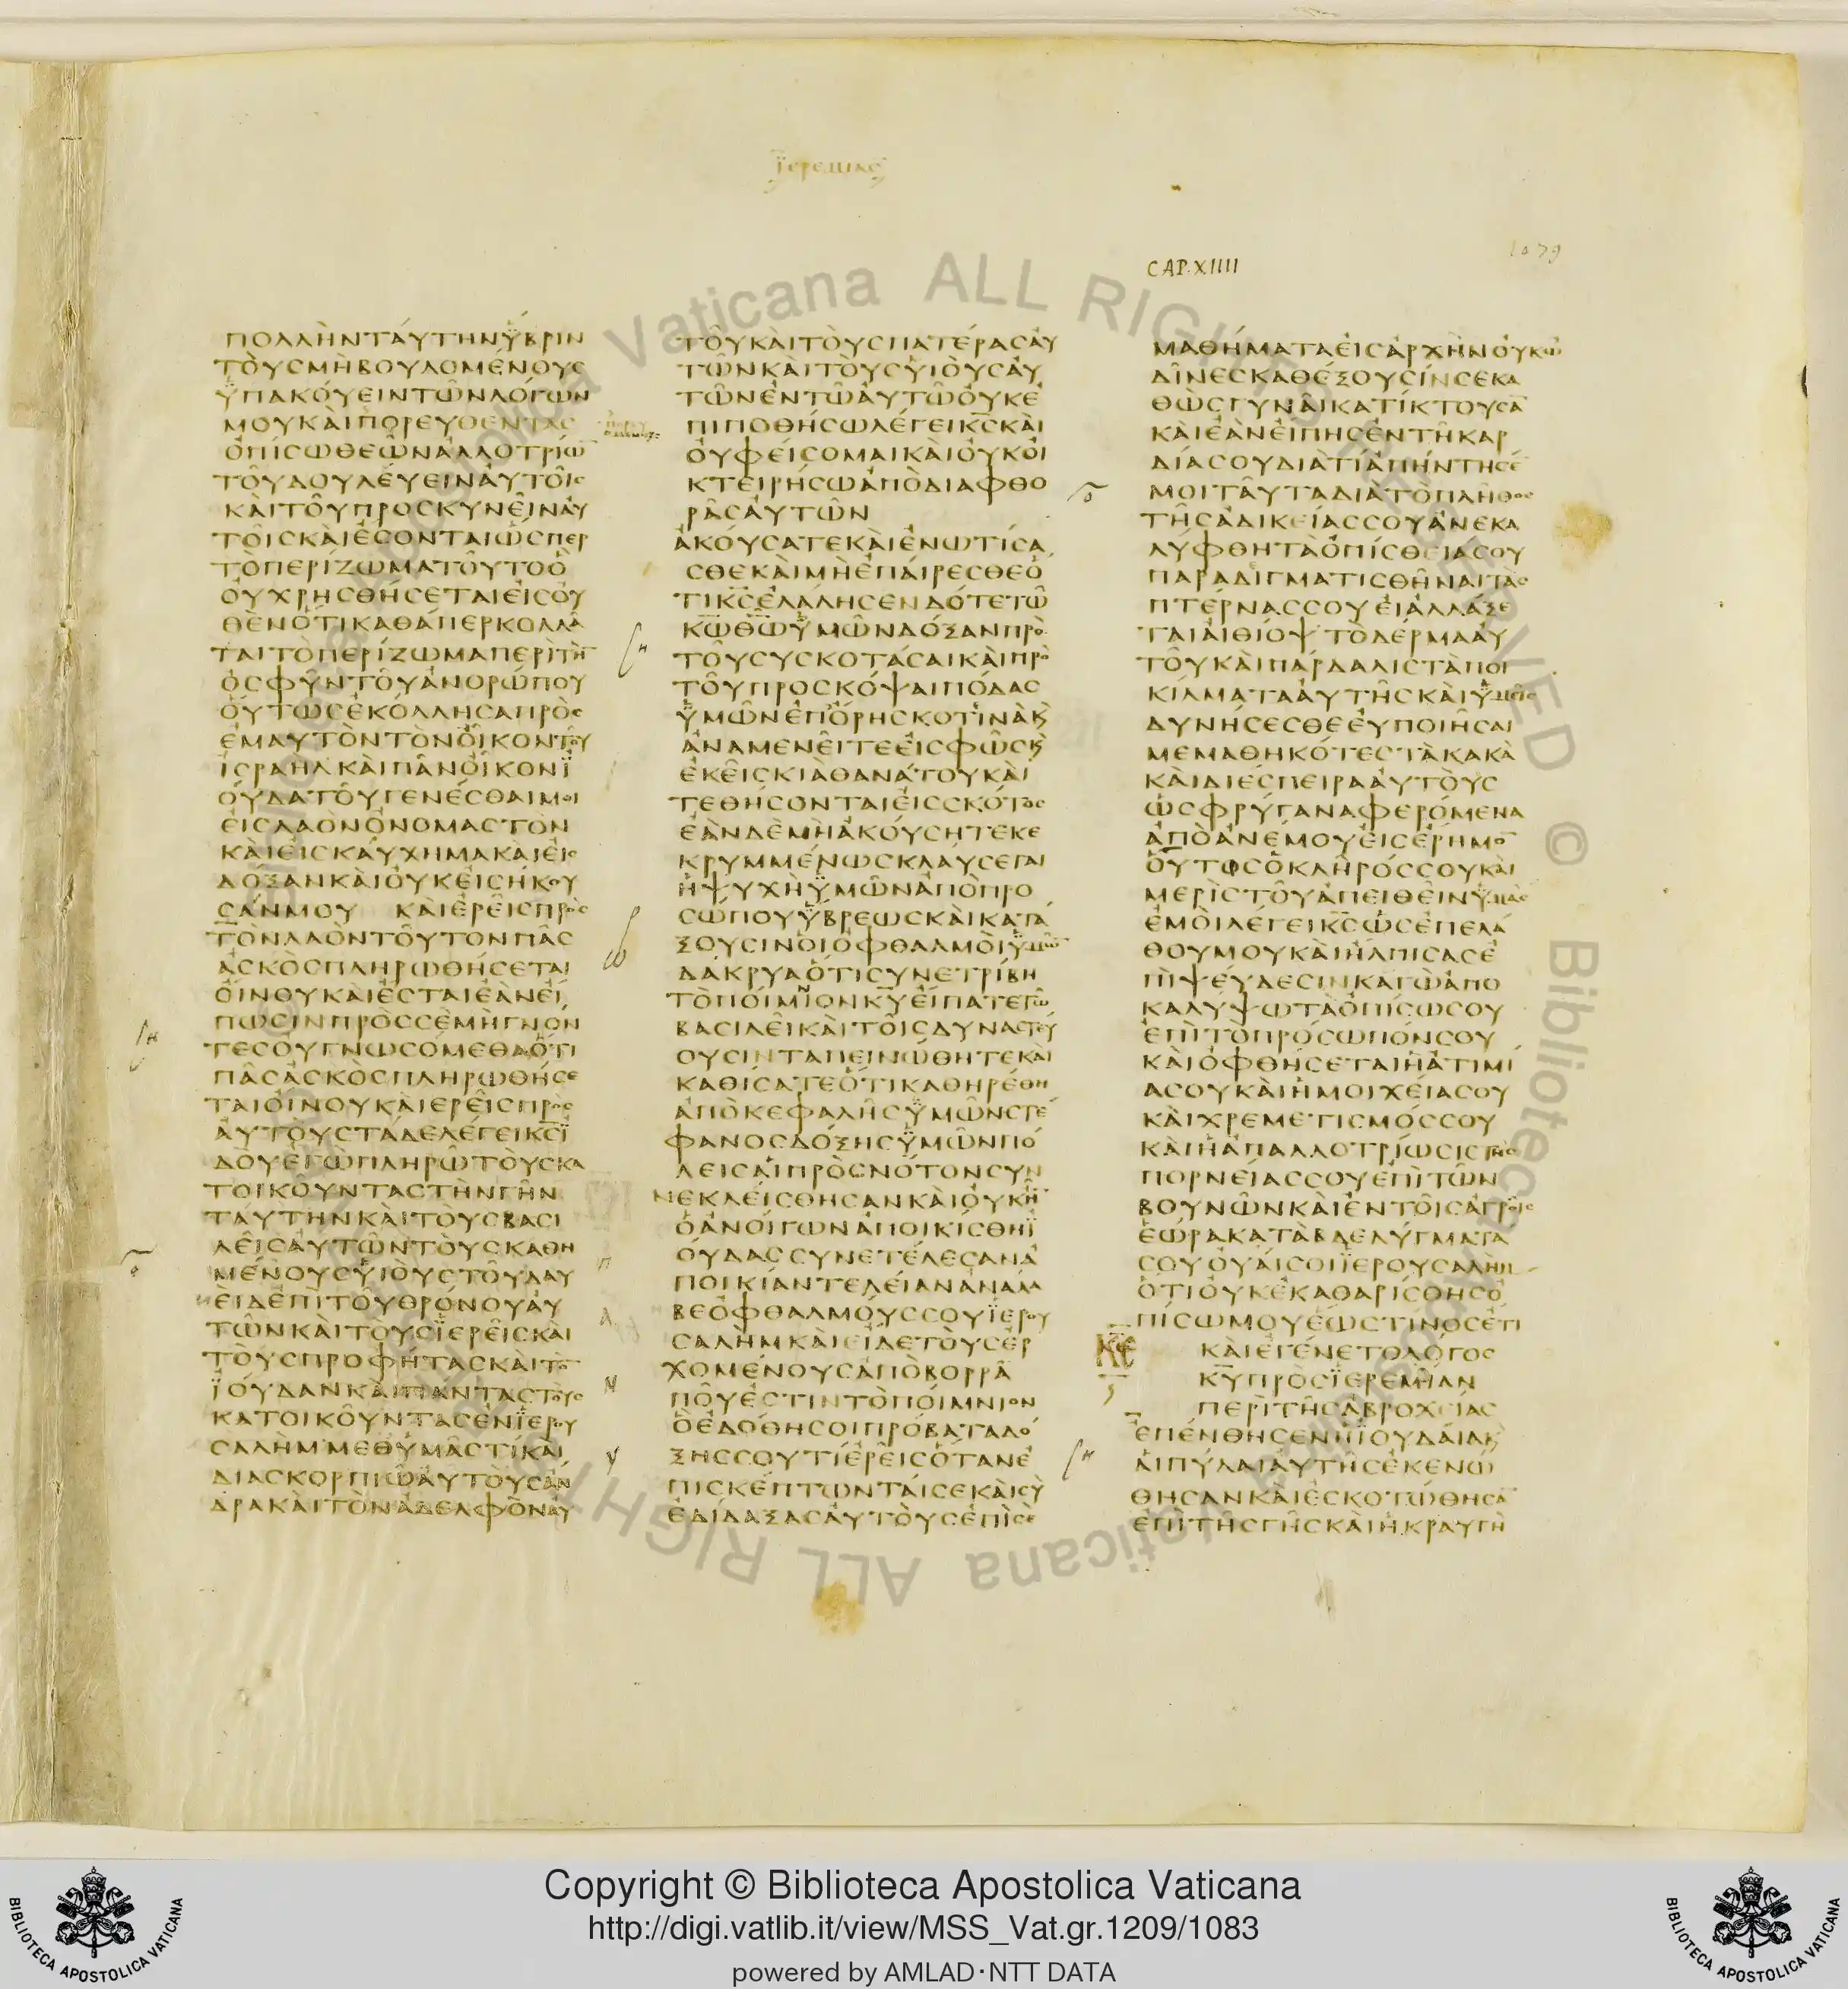 ϊερεμιας
1079
CAP. XIIII
ΠΟΛΛΗΝΤΑΥΤΗΝΥΒΡΙΝ
ΤΟΥΣΜΗΒΟΥΛΟΜΕΝΟΥΣ
ΥΠΑΚΟΥΕΙΝΤΩΝΛΟΓΩΝ
ΜΟΥΚΑΙΠΟΡΕΥΘΕΝΤΑΣ
ΟΠΙΣΩΘΕΩΝΑΛΛΟΤΡΙΩ̅
ΤΟΥΔΟΥΛΕΥΕΙΝΑΥΤΟΙΣ
ΚΑΙΤΟΥΠΡΟΣΚΥΝΕΙΝΑΥ
ΤΟΙΣΚΑΙΕΣΟΝΤΑΙΩΣΠΕΡ
ΤΟΠΕΡΙΖΩΜΑΤΟΥΤΟΟ
ΟΥΧΡΗΣΘΗΣΕΤΑΙΕΙΣΟΥ
ΘΕΝΟΤΙΚΑΘΑΠΕΡΚΟΛΛΑ
ΤΑΙΤΟΠΕΡΙΖΩΜΑΠΕΡΙΤΗ̅
ΟΣΦΥΝΤΟΥΑΝΘΡΩΠΟΥ
ΟΥΤΩΣΕΚΟΛΛΗΣΑΠΡΟΣ
ΕΜΑΥΤΟΝΤΟΝΟΙΚΟΝΤΟΥ
ΙΣΡΑΗΛΚΑΙΠΑΝΟΙΚΟΝΪ
ΟΥΔΑΤΟΥΓΕΝΕΣΘΑΙΜΟΙ
ΕΙΣΛΑΟΝΟΝΟΜΑΣΤΟΝ
ΚΑΙΕΙΣΚΑΥΧΗΜΑΚΑΙΕΙΣ
ΔΟΞΑΝΚΑΙΟΥΚΕΙΣΗΚΟΥ
ΣΑΝΜΟΥ ΚΑΙΕΡΕΙΣΠΡΟΣ
ΤΟΝΛΑΟΝΤΟΥΤΟΝΠΑΣ
ΑΣΚΟΣΠΛΗΡΩΘΗΣΕΤΑΙ
ΟΙΝΟΥΚΑΙΕΣΤΑΙΕΑΝΕΙ
ΠΩΣΙΝΠΡΟΣΣΕΜΗΓΝΟΝ
ΤΕΣΟΥΓΝΩΣΟΜΕΘΑΟΤΙ
ΠΑΣΑΣΚΟΣΠΛΗΡΩΘΗΣΕ
ΤΑΙΟΙΝΟΥΚΑΙΕΡΕΙΣΠΡΟΣ
ΑΥΤΟΥΣΤΑΔΕΛΕΓΕΙΚ̅Σ̅Ϊ
ΔΟΥΕΓΩΠΛΗΡΩΤΟΥΣΚΑ
ΤΟΙΚΟΥΝΤΑΣΤΗΝΓΗΝ
ΤΑΥΤΗΝΚΑΙΤΟΥΣΒΑΣΙ
ΛΕΙΣΑΥΤΩΝΤΟΥΣΚΑΘΗ
ΜΕΝΟΥΣΥΙΟΥΣΤΟΥΔΑΥ
ΕΙΔΕΠΙΤΟΥΘΡΟΝΟΥΑΥ
ΤΩΝΚΑΙΤΟΥΣΪΕΡΕΙΣΚΑΙ
ΤΟΥΣΠΡΟΦΗΤΑΣΚΑΙΤΟ̅
ΪΟΥΔΑΝΚΑΙΠΑΝΤΑΣΤΟΥΣ
ΚΑΤΟΙΚΟΥΝΤΑΣΕΝΪΕΡΟΥ
ΣΑΛΗΜΜΕΘΥΜΑΣΤΙΚΑΙ
ΔΙΑΣΚΟΡΠΙΩΑΥΤΟΥΣΑΝ
ΔΡΑΚΑΙΤΟΝΑΔΕΛΦΟΝΑΥ
ΤΟΥΚΑΙΤΟΥΣΠΑΤΕΡΑΣΑΥ
ΤΩΝΚΑΙΤΟΥΣΥΙΟΥΣΑΥ
ΤΩΝΕΝΤΩΑΥΤΩΟΥΚΕ
ΠΙΠΟΘΗΣΩΛΕΓΕΙΚ̅Σ̅ΚΑΙ
ΟΥΦΕΙΣΟΜΑΙΚΑΙΟΥΚΟΙ
ΚΤΕΙΡΗΣΩΑΠΟΔΙΑΦΘΟ
ΡΑΣΑΥΤΩΝ
ΑΚΟΥΣΑΤΕΚΑΙΕΝΩΤΙΣΑ
ΣΘΕΚΑΙΜΗΕΠΑΙΡΕΣΘΕΟ
ΤΙΚ̅Σ̅ΕΛΑΛΗΣΕΝΔΟΤΕΤΩ
Κ̅Ω̅Θ̅Ω̅ΥΜΩΝΔΟΞΑΝΠΡΟ
ΤΟΥΣΥΣΚΟΤΑΣΑΙΚΑΙΠΡΟ
ΤΟΥΠΡΟΣΚΟΨΑΙΠΟΔΑΣ
ΥΜΩΝΕΠΟΡΗΣΚΟΤΙΝΑΚ
ΑΝΑΜΕΝΕΙΤΕΕΙΣΦΩΣΚ
ΕΚΕΙΣΚΙΑΘΑΝΑΤΟΥΚΑΙ
ΤΕΘΗΣΟΝΤΑΙΕΙΣΣΚΟΤΟΣ
ΕΑΝΔΕΜΗΑΚΟΥΣΗΤΕΚΕ
ΚΡΥΜΜΕΝΩΣΚΛΑΥΣΕΤΑΙ
ΗΨΥΧΗΥΜΩΝΑΠΟΠΡΟ
ΣΩΠΟΥΥΒΡΕΩΣΚΑΙΚΑΤΑ
ΞΟΥΣΙΝΟΙΟΦΘΑΛΜΟΙΥΜΩ̅
ΔΑΚΡΥΑΟΤΙΣΥΝΕΤΡΙΒΗ
ΤΟΠΟΙΜΝΙΟΝΚ̅Υ̅ΕΙΠΑΤΕΤΩ
ΒΑΣΙΛΕΙΚΑΙΤΟΙΣΔΥΝΑΣΤΕΥ
ΟΥΣΙΝΤΑΠΕΙΝΩΘΗΤΕΚΑΙ
ΚΑΘΙΣΑΤΕΟΤΙΚΑΘΗΡΕΘΗ
ΑΠΟΚΕΦΑΛΗΣΥΜΩΝΣΤΕ
ΦΑΝΟΣΔΟΞΗΣΥΜΩΝΠΟ
ΛΕΙΣΑΙΠΡΟΣΝΟΤΟΝΣΥΝ
ΝΕΚΛΕΙΣΘΗΣΑΝΚΑΙΟΥΚΗ̅
ΟΑΝΟΙΓΩΝΑΠΟΙΚΙΣΘΗΪ
ΟΥΔΑΣΣΥΝΕΤΕΛΕΣΑΝΑ
ΠΟΙΚΙΑΝΤΕΛΕΙΑΝΑΝΑΛΑ
ΒΕΟΦΘΑΛΜΟΥΣΣΟΥΪΕΡΟΥ
ΣΑΛΗΜΚΑΙΕΙΔΕΤΟΥΣΕΡ
ΧΟΜΕΝΟΥΣΑΠΟΒΟΡΡΑ
ΠΟΥΕΣΤΙΝΤΟΠΟΙΜΝΙΟΝ
ΟΕΔΟΘΗΣΟΙΠΡΟΒΑΤΑΔΟ
ΞΗΣΣΟΥΤΙΕΡΕΙΣΟΤΑΝΕ
ΠΙΣΚΕΠΤΩΝΤΑΙΣΕΚΑΙΣΥ
ΕΔΙΔΑΞΑΣΑΥΤΟΥΣΕΠΙΣΕ
ΜΑΘΗΜΑΤΑΕΙΣΑΡΧΗΝΟΥΚΩ
ΔΙΝΕΣΚΑΘΕΞΟΥΣΙΝΣΕΚΑ
ΘΩΣΓΥΝΑΙΚΑΤΙΚΤΟΥΣΑ̅
ΚΑΙΕΑΝΕΙΠΗΣΕΝΤΗΚΑΡ
ΔΙΑΣΟΥΔΙΑΤΙΑΠΗΝΤΗΣΕ
ΜΟΙΤΑΥΤΑΔΙΑΤΟΠΛΗΘΟΣ
ΤΗΣΑΔΙΚΕΙΑΣΣΟΥΑΝΕΚΑ
ΛΥΦΘΗΤΑΟΠΙΣΘΕΙΑΣΟΥ
ΠΑΡΑΔΙΓΜΑΤΙΣΘΗΝΑΙΤΑΣ
ΠΤΕΡΝΑΣΣΟΥΕΙΑΛΛΑΞΕ
ΤΑΙΑΙΘΙΟΨΤΟΔΕΡΜΑΑΥ
ΤΟΥΚΑΙΠΑΡΔΑΛΙΣΤΑΠΟΙ
ΚΙΛΜΑΤΑΑΥΤΗΣΚΑΙΥΜΕΙΣ
ΔΥΝΗΣΕΣΘΕΕΥΠΟΙΗΣΑΙ
ΜΕΜΑΘΗΚΟΤΕΣΤΑΚΑΚΑ
ΚΑΙΔΙΕΣΠΕΙΡΑΑΥΤΟΥΣ
ΩΣΦΡΥΓΑΝΑΦΕΡΟΜΕΝΑ
ΑΠΟΑΝΕΜΟΥΕΙΣΕΡΗΜΟ̅
ΟΥΤΟΣΟΚΛΗΡΟΣΣΟΥΚΑΙ
ΜΕΡΙΣΤΟΥΑΠΕΙΘΕΙΝΥΜΑΣ
ΕΜΟΙΛΕΓΕΙΚ̅Σ̅ΩΣΕΠΕΛΑ
ΘΟΥΜΟΥΚΑΙΗΛΠΙΣΑΣΕ
ΠΙΨΕΥΔΕΣΙΝΚΑΓΩΑΠΟ
ΚΑΛΥΨΩΤΑΟΠΙΣΩΣΟΥ
ΕΠΙΤΟΠΡΟΣΩΠΟΝΣΟΥ
ΚΑΙΟΦΘΗΣΕΤΑΙΗΑΤΙΜΙ
ΑΣΟΥΚΑΙΗΜΟΙΧΕΙΑΣΟΥ
ΚΑΙΧΡΕΜΕΤΙΣΜΟΣΣΟΥ
ΚΑΙΗΑΠΑΛΛΟΤΡΙΩΣΙΣΤΗΣ
ΠΟΡΝΕΙΑΣΣΟΥΕΠΙΤΩΝ
ΒΟΥΝΩΝΚΑΙΕΝΤΟΙΣΑΓΡΟΙΣ
ΕΩΡΑΚΑΤΑΒΔΕΛΥΓΜΑΤΑ
ΣΟΥΟΥΑΙΣΟΙΪΕΡΟΥΣΑΛΗΜ
ΟΤΙΟΥΚΕΚΑΘΑΡΙΣΘΗΣΟ
ΠΙΣΩΜΟΥΕΩΣΤΙΝΟΣΕΤΙ
ΚΑΙΕΓΕΝΕΤΟΛΟΓΟΣ
Κ̅Υ̅ΠΡΟΣΪΕΡΕΜΙΑΝ
ΠΕΡΙΤΗΣΑΒΡΟΧΕΙΑΣ
ΕΠΕΝΘΗΣΕΝΗΪΟΥΔΑΙΑΚ
ΑΙΠΥΛΑΙΑΥΤΗΣΕΚΕΝΩ
ΘΗΣΑΝΚΑΙΕΣΚΟΤΩΘΗΣΑ̅
ΕΠΙΤΗΣΓΗΣΚΑΙΗΚΡΑΥΓΗ
Copyright © Biblioteca Apostolica Vaticana
http://digi.vatlib.it/view/MSS_Vat.gr.1209/1083
powered by AMLAD·NTT DATA
BIBLIOTECA APOSTOLICA VATICANA
BIBLIOTECA APOSTOLICA VATICANA